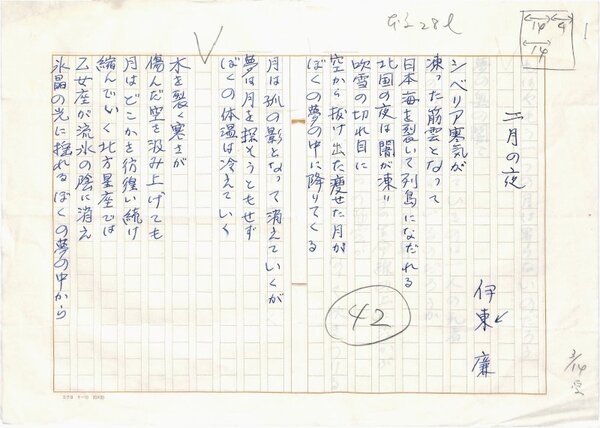 二月の夜
伊東 廉
シベリア寒気が
凍った筋雲となって
日本海を裂いて列島になだれる
北国の夜は闇が凍り
吹雪の切れ目に
空から抜け出た痩せた月が
ぼくの夢の中に降りてくる
月は狐の影となって消えていくが
夢は月を探そうともせず
ぼくの体温は冷えていく
木を裂く寒さが
傷んだ空を汲み上げても
月はどこかを彷徨い続け
縮んでいく北方星座では
乙女座が流氷の陰に消え
氷晶の光に揺れるぼくの夢の中から
42
14
9
14
3/14